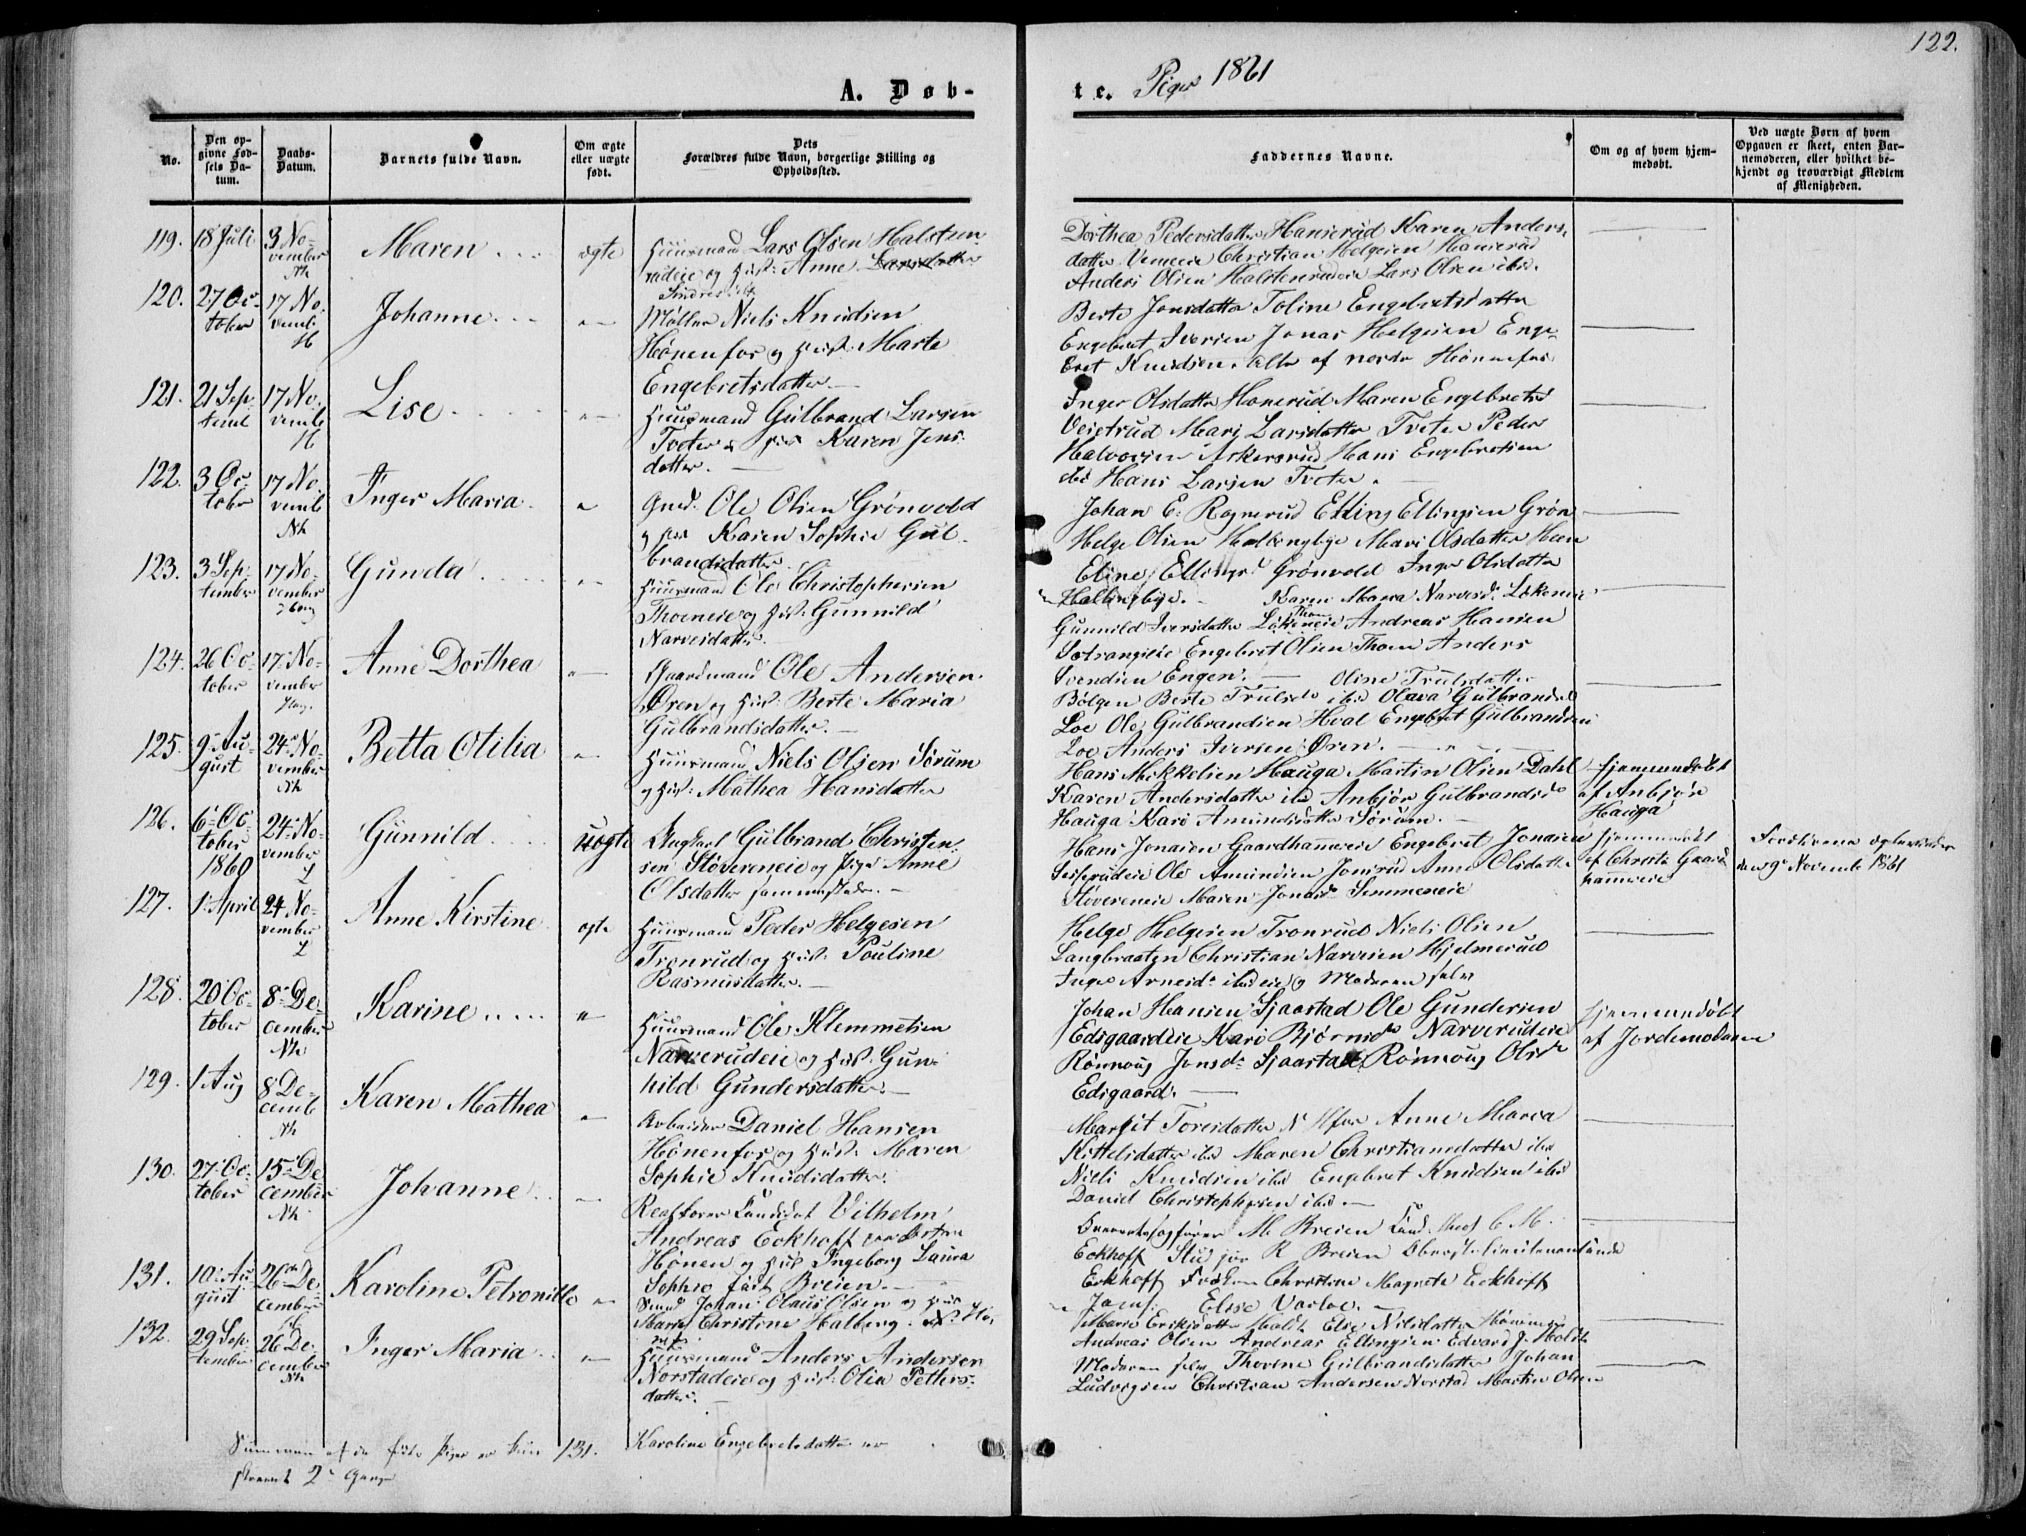 122.
A. Døb-
te. Piger 1861
No.
Den op-
givne Fød-
sels Da-
tum.
Daabs-
Datum.
Barnets fulde Navn.
Om ægte
eller uægte
født.
Dets
Forældres fulde Navn, borgerlige Stilling og
Opholdssted.
Faddernes Navne.
Om og af hvem hjem-
medøbt.
Ved uægte Børn af hvem
Opgaven er skeet, enten Bar-
nemoderen, eller hvilket be-
kjendt og troværdigt Medlem
af Menigheden.
119. 18 Juli 3 No-
vember
Nh
Maren ægte
Huusmand Lars Olsen Halsten-
rudeie og Hust: Anne Larsdatter
Dorthea Pedersdatter Hanserud Karen Anders-
datter Christian Helgesen Hanserud
Anders Olsen Halstenrudeie Lars Olsen ibid.
120. 27 Oc-
tober 17 No-
vemb
H
Johanne
Møller Niels Knudsen
Hønenfos og Hust: Marte
Engebretsdatter
Berte Jonsdatter Toline Engebretsdatter
Engebret Iversen Jonas Helgesen Enge-
bret Knudsen. alle af nordre Hønenfos
121. 21 Sep-
temb 17 No-
vemb
H
Lise
Huusmand Gulbrand Larsen
Tveter & Hust Karen Jens-
datter.
Inger Olsdatter Honerud Maren Engebrets
Veietrud Mari Larsdatter Tveter Peder
Halvorsen Askersrud Hans Engebretsen
ibd Hans Larsen Tveter.
122. 3 Oc-
tober 17 No-
vemb
Nh
Inger Maria
Gmd. Ole Olsen Grønvold
og Hust Karen Sophie Gul-
brandsdatter.
Johan E. Rognerud Elling Ellingsen Grøn
Helge Olsen Hallingbye Mari Olsdatter Heen
Eline Ellingsd Grønvold Inger Olsdatter
Hallingbye.
123. 3 Sep-
tember 17 No-
vember
Gunda
Huusmand Ole Christophersen
Thoeneie og Hust: Gunnild
Narvesdatter.
Karen Maria Narvesd. Løkeneie
Gunnild Iversdatter Løkeneie Andreas Hansen
Engebret Olsen Thoen Anders
Svendsen Engen.
124. 26 Oc-
tober 17 No-
vember
Anne Dorthea
Gaardmand Ole Andersen
Øren og Hust: Berte Maria
Gulbrandsdatter.
Oline Trulsdatter
Bølgen Berte Trulsd ibid Olava Gulbrandsd
Loe Ole Gulbrandsen Hval Engebret Gulbrandsen
Loe Anders Iversen Øren.
125. 9 Au-
gust 24 No-
vember
Nh
Betta Otilia
Huusmand Niels Olsen Sørum
og Hust: Mathea Hansdatter
Hans Mikkelsen Hauga Martin Olsen Dahl
Karen Andersdatter ibd Anbjør Gulbrandsd
Hauga Kari Amundsdatter Sørum.
Hjemmedøbt
af Anbjør
Hauga
126. 6 Oc-
tober
1860
24 No-
vember
L
Gunnild uægte
Ungkarl Gulbrand Christen-
sen Støvereneie og Pige Anne
Olsdatter sammesteds.
Hans Jonasen Gaardhammeie Engebret Jonasen
Ole Amundsen Jonsrud Anne Olsdatter
Støvereneie Maren Jonasd
Hjemmedøbt
af Christi Gaard
hammeie
Forældrene
den 9 Novemb 1861
127. 1 April 24 No-
vember
L
Anne Kirstine ægte
Huusmand Peder Helgesen
Tronrud og Hust: Pouline
Rasmusdatter.
Helge Helgesen Tronrud Niels Olsen
Langbraaten Christian Narvesen Hjelmerud
Inger Arnesd ibdeie og Moderen selv
128. 20 Oc-
tober 8 De-
cember
Nh
Karine
Huusmand Ole Klemmetsen
Narverudeie og Hust: Gun-
hild Gundersdatter.
Johan Hansen Sjaastad Ole Gundersen
Edsgaardeie Kari Bjørnsd Narverudeie
Rønnoug Jonsd Sjaastad, Rønnoug Olsd
Edsgaard.
Hjemmedøbt
af Jordemoderen
129. 1 Aug 8 De-
cemb
Nh
Karen Mathea
Arbeider Daniel Hansen
Hønenfos og Hust: Maren
Sophie Knudsdatter.
Margit Toresdatter N. Anne Maria
Kittelsdatter ibd Maren Christiansdatter ibd
Niels Knudsen ibd Engebret Knudsen ibd
Daniel Christophersen ibd.
130. 27 Oc-
tober 15 De-
cember
Nh
Johanne
Candidat Vilhelm
Andreas Eckhoff
Hønen og Hust Ingeborg Laura
Sophie født Breien.
Overretssagfører M. Breien Cand. theol C. M.
Eckhoff Stud jur R Breien Oberstlieutenantinde
Eckhoff Frøken Christine Magrete Eckhoff
Elise Varloe.
131. 10 Au-
gust 26 De-
cember
Karoline Petronille
Smed Johan Olaus Olsen og Hust
Maren Christine Halberg.
Marie Eriksdatter Moldt Else Nilsdatter
Andreas Olsen Andreas Ellingsen Edvard J. Moldt
132. 29 Sep-
tember 26 De-
cember
Nh
Inger Maria
Huusmand Anders Andersen
Norstadeie og Hust: Olia Petters-
datter.
Moderen selv Thorine Gulbrandsdatter Johan
Ludvigsen Christian Andersen Norstad Martin Olsen
Summen af de fødte Piger er kun 131. Karoline Engebretsdatter er
skrevet 2 Gange